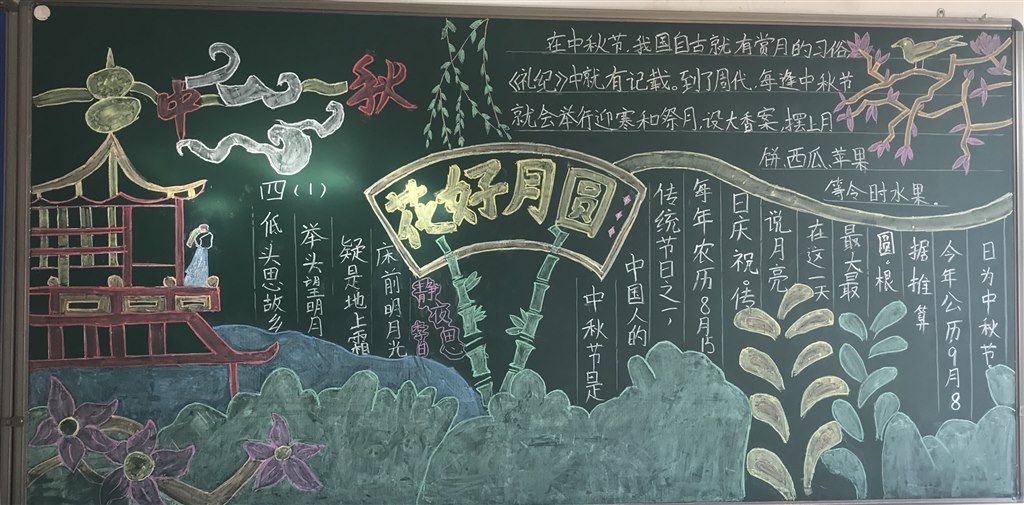 中秋
花好月圆
四(1)
静夜思
床前明月光
疑是地上霜
举头望明月
低头思故乡
在中秋节,我国自古就有赏月的习俗
《礼纪》中就有记载。到了周代,每逢中秋节
就会举行迎寒和祭月,设大香案,摆上月
饼,西瓜,苹果
等令时水果。
中秋节是
中国人的
传统节日之一,
每年农历8月15
日庆祝。传
说月亮
在这一天
最大最
圆。根
据推算
今年公历9月8
日为中秋节